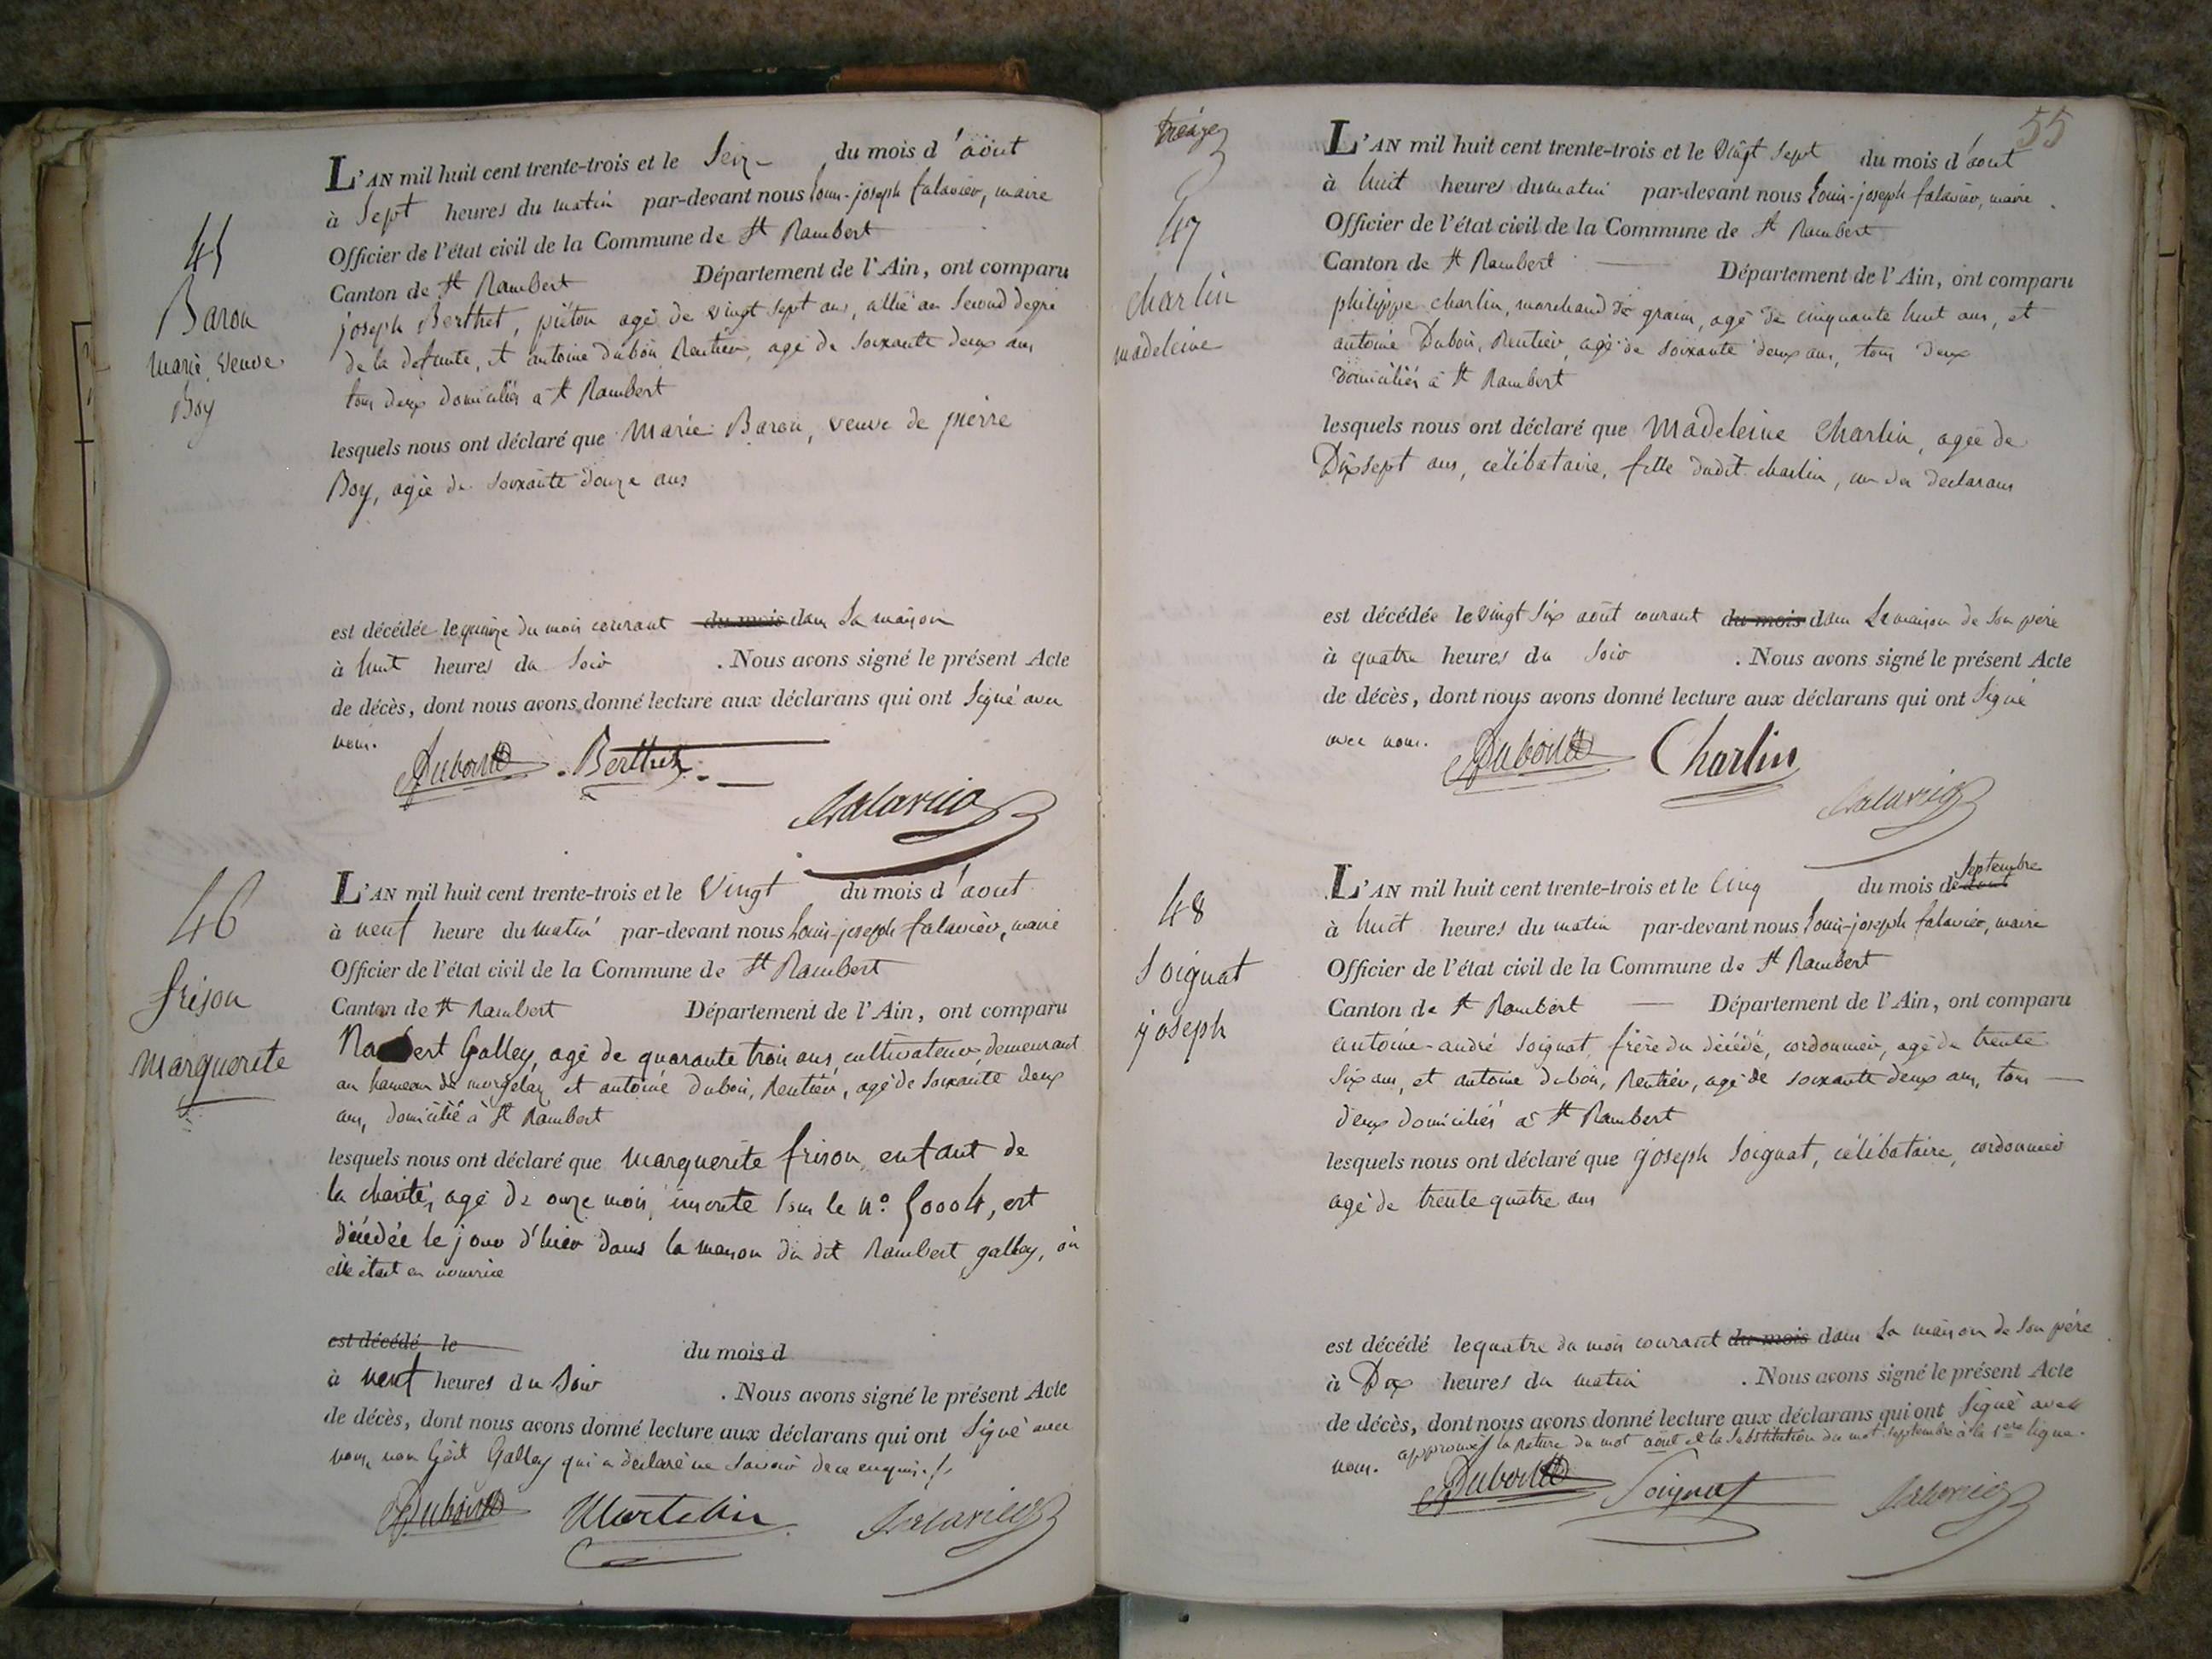 45
Baron
marie, veuve
Boy
L'AN mil huit cent trente-trois et le Seize du mois d'août
à Sept heures du matin par-devant nous Louis-joseph falavier, maire
Officier de l'état civil de la Commune de St Rambert
Canton de St Rambert Département de l'Ain, ont comparu
joseph Berthet, piéton agé de vingt sept ans, allié au Second degré
de la defunte, et antoine dubois Rentier, agé de soixante deux ans
tous deux domiciliés a St Rambert
lesquels nous ont déclaré que Marie Baron, veuve de pierre
Boy, agée de soixante douze ans
est décédée le quinze du mois courant du mois dans sa maison
à huit heures du soir . Nous avons signé le présent Acte
de décès, dont nous avons donné lecture aux déclarans qui ont signé avec
nous.
Dubois Berthet
falavier
46
frison
marguerite
L'AN mil huit cent trente-trois et le Vingt du mois d'aout
à neuf heure du matin par-devant nous Louis-joseph falavier, maire
Officier de l'état civil de la Commune de St Rambert
Canton de St Rambert Département de l'Ain, ont comparu
Rambert Galley, agé de quarante trois ans cultivateur demeurant
au hameau de morgelaz et antoine dubois, Rentier, agé de soixante deux
ans, domicilié à St Rambert
lesquels nous ont déclaré que marguerite frison, enfant de
la charité, agé de onze mois, inscrite sous le n° 50004, est
décédée le jour d'hier dans la maison du dit Rambert galley, où
elle était en nourrice
est décédé le du mois d
à neuf heures du soir . Nous avons signé le présent Acte
de décès, dont nous avons donné lecture aux déclarans qui ont signé avec
nous, non ledit Galley qui a déclaré ne savoir de ce enquis.
Dubois Martelin falavier
55
47
charlin
madeleine
L'AN mil huit cent trente-trois et le Vingt sept du mois d'aout
à huit heures du matin par-devant nous Louis-joseph falavier, maire
Officier de l'état civil de la Commune de St Rambert
Canton de St Rambert Département de l'Ain, ont comparu
philippe charlin, marchand de grains, agé de cinquante huit ans, et
antoine Dubois, Rentier, agé de soixante deux ans, tous deux
domiciliés à St Rambert
lesquels nous ont déclaré que Madeleine Charlin, agée de
Dix sept ans, célibataire, fille dudit charlin, un des declarans
est décédée le vingt six août courant du mois dans la maison de son père
à quatre heures du soir . Nous avons signé le présent Acte
de décès, dont nous avons donné lecture aux déclarans qui ont signé
avec nous.
Dubois Charlin
falavier
48
Soignat
joseph
L'AN mil huit cent trente-trois et le Cinq du mois de aout Septembre
à huit heures du matin par-devant nous Louis-joseph falavier, maire
Officier de l'état civil de la Commune de St Rambert
Canton de St Rambert Département de l'Ain, ont comparu
antoine-andré Soignat, frère du décédé, cordonnier, agé de trente
six ans, et antoine dubois, Rentier, agé de soixante deux ans, tous
deux domiciliés à St Rambert
lesquels nous ont déclaré que joseph Soignat, célibataire, cordonnier
agé de trente quatre ans
est décédé le quatre du mois courant du mois dans la maison de son père
à Dix heures du matin . Nous avons signé le présent Acte
de décès, dont nous avons donné lecture aux déclarans qui ont signé avec
nous. approuvés la rature du mot août et la substitution du mot septembre à la 1ere ligne.
Dubois Soignat falavier